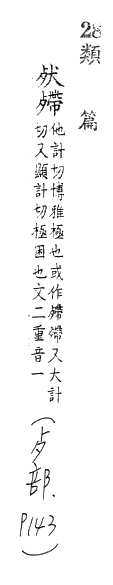 28 類篇
殢
他計切博雅極也或作殢又大計
切又顯計切極困也文二重音一
(歹部. P143)